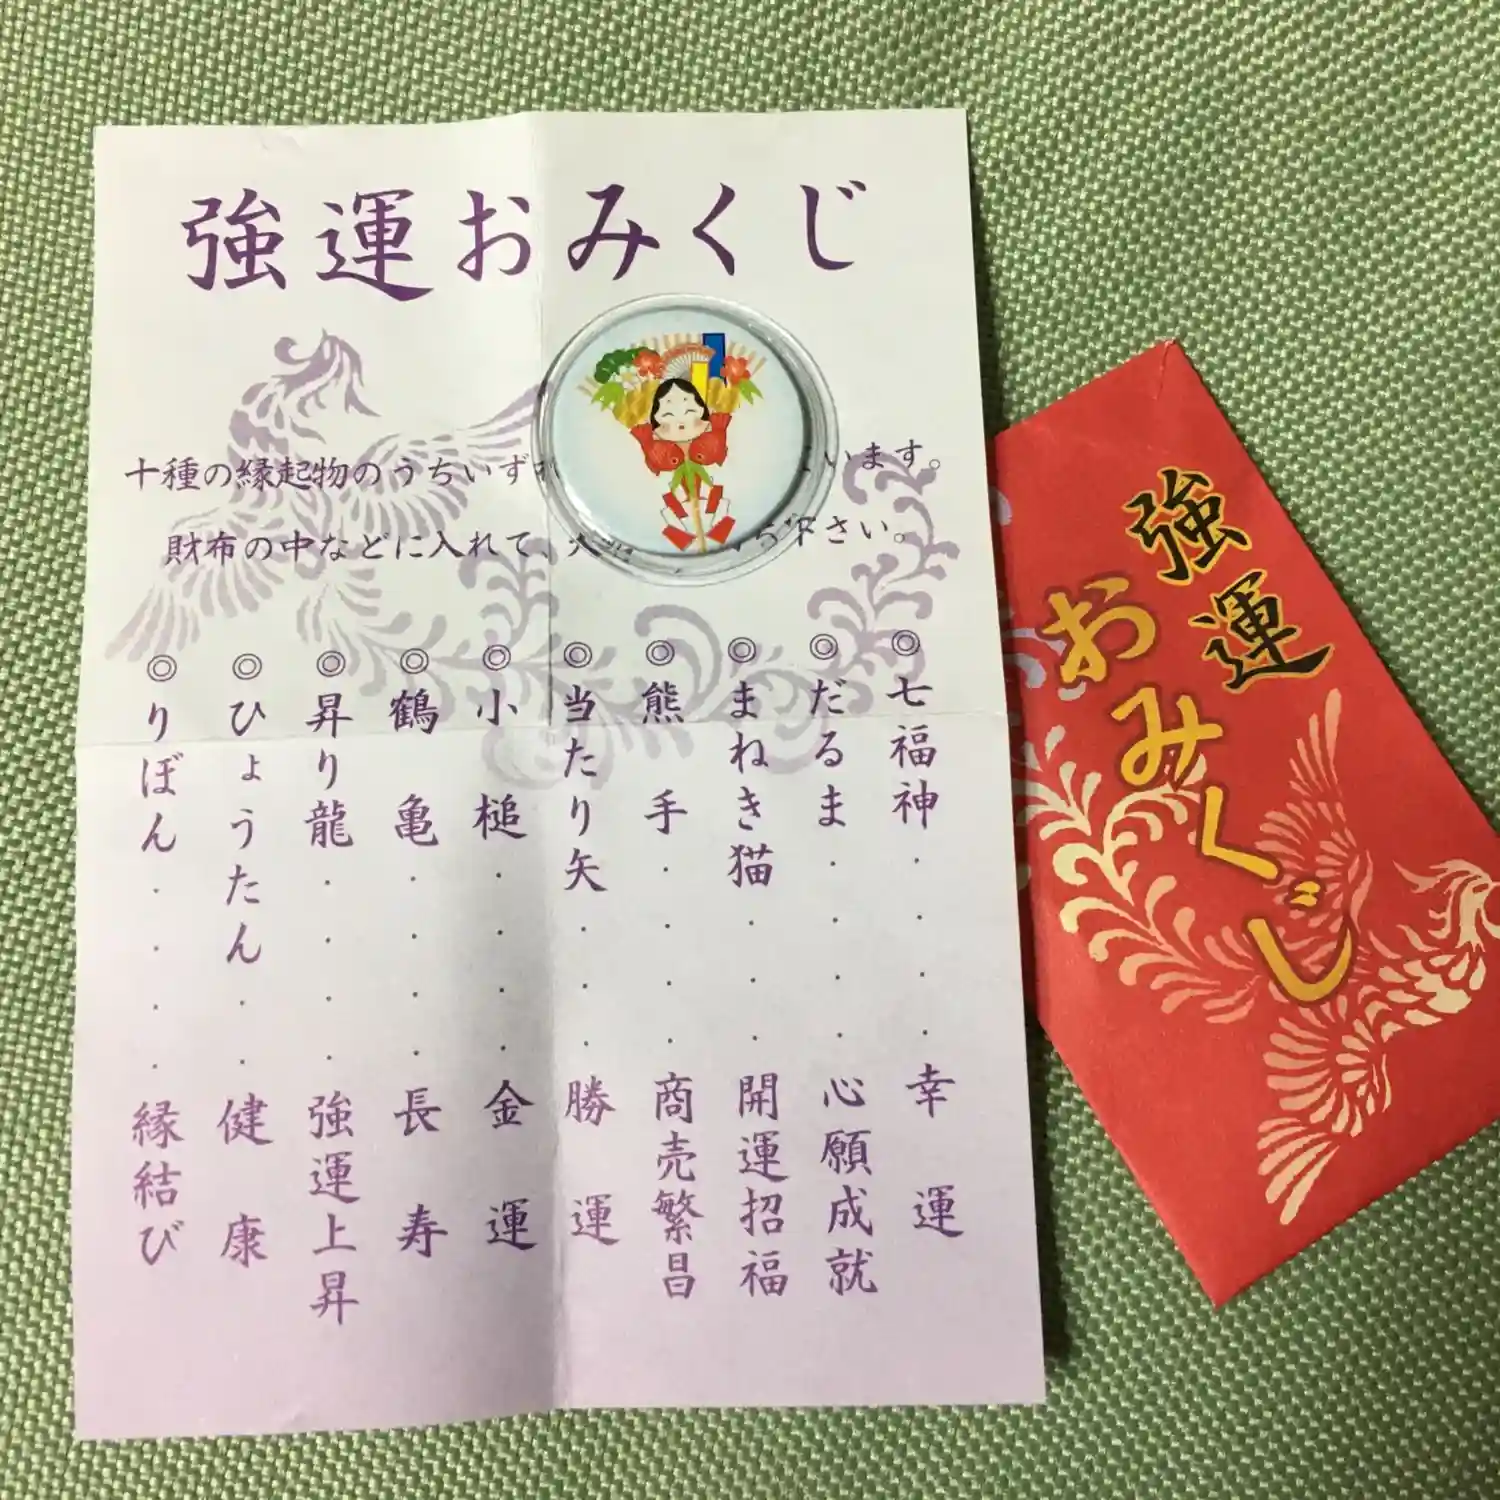 強運おみくじ
十種の縁起物のうちいずれ います。
財布の中などに入れて、 下さい。
◎七福神・・・・幸運
◎だるま・・・・心願成就
◎まねき猫・・・開運招福
◎熊手・・・・商売繁昌
◎当たり矢・・・勝運
◎小槌・・・・金運
◎鶴亀・・・・長寿
◎昇り龍・・・・強運上昇
◎ひょうたん・・健康
◎りぼん・・・・縁結び
強運
おみくじ